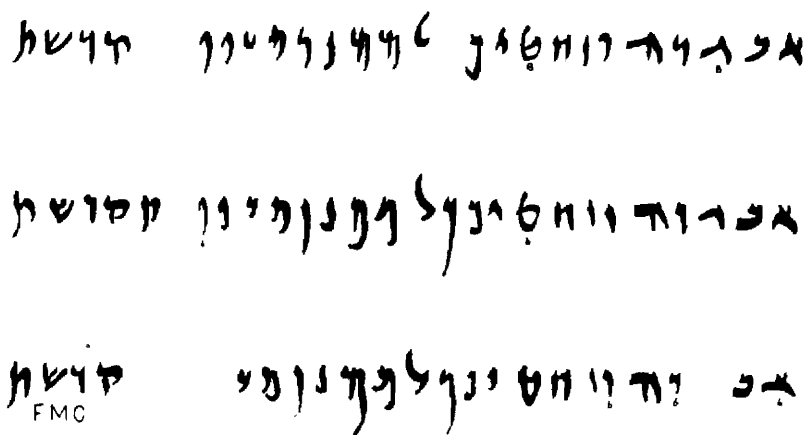 אבגדהוזחטיכ למםנןסעפף קרשת
אבגדהוזחטיכךלמםנןסעפף צקרשת
אב דהוזחטיכךלמםנןסע קרשת
FMC